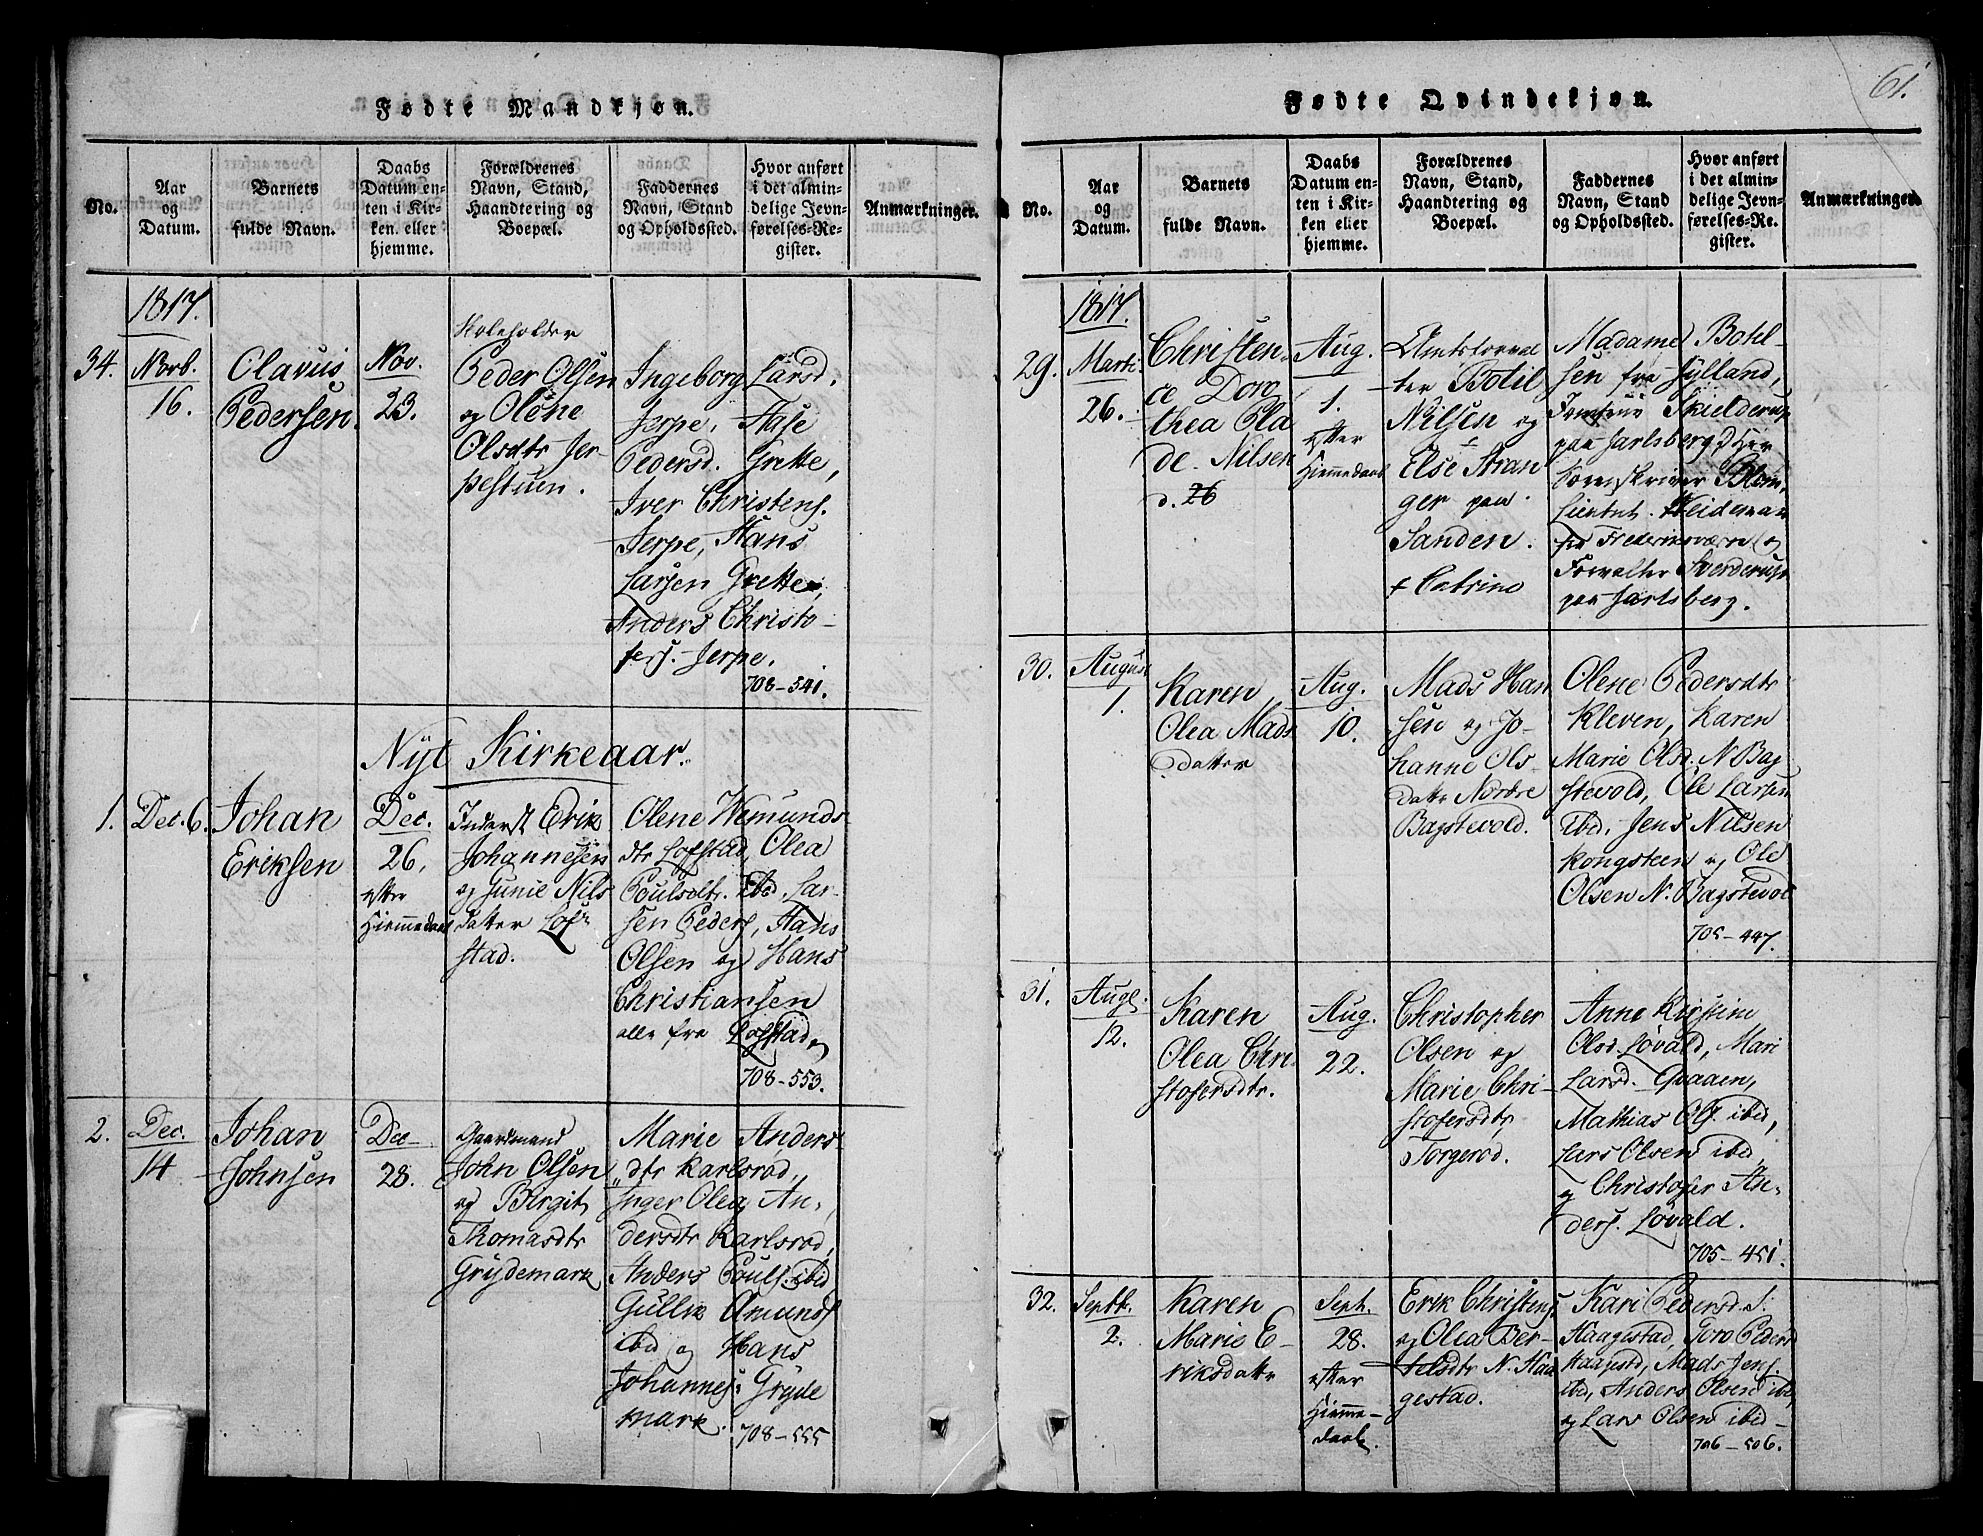 Fødte Mandkjøn.
No.
Aar
og
Datum.
Barnets
fulde Navn.
Daabs
Datum en-
ten i Kir-
ken eller
hjemme.
Forældrenes
Navn, Stand,
Haandtering og
Boepæl.
Faddernes
Navn, Stand
og Opholdssted.
Hvor anført
i det almin-
delige Jevn-
førelses-Re-
gister.
Anmærkninger.
1817.
34.
Novb.
16.
Olavus
Pedersen.
Nov.
23.
Peder Olsen
og Olene
Olsdtr Jer-
pestuen.
Ingeborg Larsd.
Jerpe, Aase
Pedersd. Grette,
Iver Christens.
Jerpe, Hans
Larsen Grette,
Anders Christo-
fers. Jerpe.
708-541.
Nyt Kirkeaar.
1.
Dec. 6.
Johan
Eriksen
Dec.
26.
efter
Hiemmedaab
Inderst Erik
Johannesen
og Gunie Nils
datter Lof-
stad.
Olene Wemunds
dtr Lofstad, Olea
Poulsdtr. ibd, Lar-
sen Peders, Hans
Olsen og Hans
Christiansen
alle fra Lofstad.
708-553.
2.
Dec.
14
Johan
Johnsen
Dec
28.
Gaardmand
John Olsen
og Birgit
Thomasdtr
Grydemark
Marie Anders
dtr Karlsrød,
Inger Olea An-
dersdtr Karlsrød,
Anders Pouls. ibid
Gullik Amunds
ibid og Hans
Johannes: Gryde
mark.
708-555
Fødte Qvindekjøn.
61.
No.
Aar
og
Datum.
Barnets
fulde Navn.
Daabs
Datum en-
ten i Kir-
ken eller
hjemme.
Forældrenes
Navn, Stand,
Haandtering og
Boepæl.
Faddernes
Navn, Stand
og Opholdssted.
Hvor anført
i det almin-
delige Jevn-
førelses-Re-
gister.
Anmærkninger.
1817.
29.
Marti
26.
Christen-
ce Doro
thea Ela
de. Nilsen
d. 26
Aug.
1.
efter
Hiemmedaab
Amtsforval
ter Botil
Nilsen og
Else Stran
ger paa
Sanden.
+ Catrine
Madame Botel-
sen fra Jylland,
Jomfrue Skielderup
paa Jarlsberg, Hr
Sorenskriver Blom,
Lieutnt. Heideman
fra Frederiksværn og
Forvalter Sverdrup
paa Jarlsberg.
30.
August
1.
Karen
Olea Mads
datter
Aug.
10.
Mads Han
sen og Jo-
hanne Ols-
datter Nordre
Bagstevold.
Olene Pedersdtr
Kleven, Karen
Marie Olsd. N. Bag
stevold, Ole Larsen
ibd. Jens Nilsen
Kongsteen og Ole
Olsen N. Bagstevol
705-447.
31.
Augt.
12.
Karen
Olea Chri-
stofersdtr.
Aug.
22.
Christopher
Olsen og
Marie Chri-
stofersdtr
Torgerød.
Anne Kirstine
Olsd. Løvald, Mari
Larsd. Graaen,
Mathias Ols. ibid,
Lars Olsen ibid,
og Christofer An-
ders. Løvald.
705-451.
32.
Septb.
2.
Karen
Marie E-
riksdatter
Sept.
28.
efter
Hiemme-
daab.
Erik Christens.
og Olea Ber-
telsdtr N. Haa
gestad.
Kari Pedersd. S.
Haagestad, Goro Pedersd
Haagestd, Mads Jens.
ibid, Anders Olsen ibid,
og Lars Olsen ibid-
706-506.